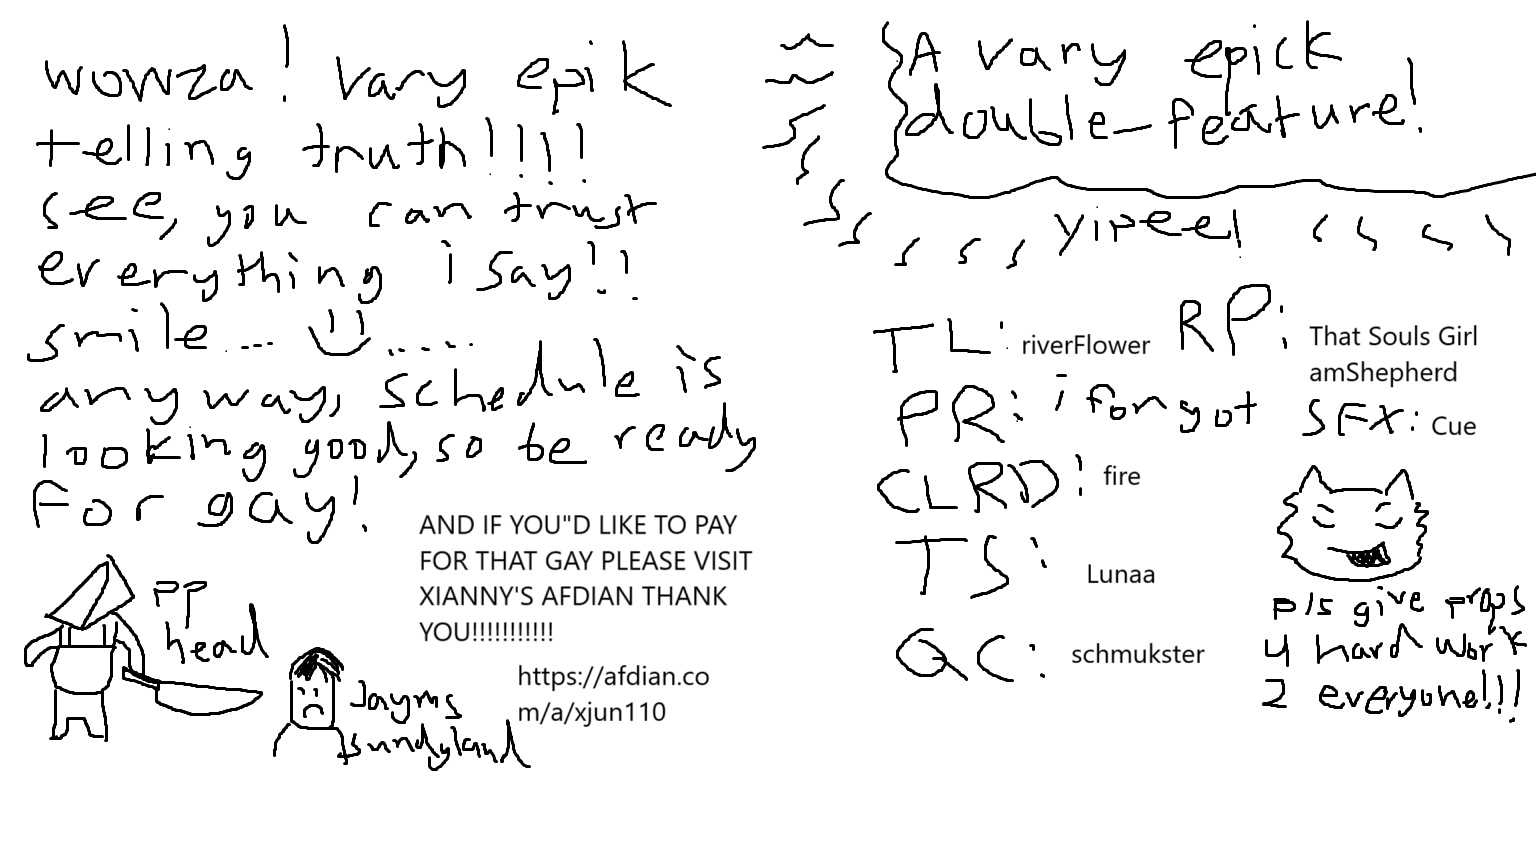 wowza! vary epik
telling truth!!!!
see, you can trust
everything i say!!
smile... .....
anyway, schedule is
looking good, so be ready
for gay!
AND IF YOU"D LIKE TO PAY
FOR THAT GAY PLEASE VISIT
XIANNY'S AFDIAN THANK
YOU!!!!!!!!!!!
https://afdian.co
m/a/xjun110
PP
head
Jayms
sundyland
A vary epick
double-feature!
yipee!
TL: riverFlower
RP: That Souls Girl
amShepherd
PR: i forgot
SFX: Cue
CLRD: fire
TS: Lunaa
QC: schmukster
pls give props
4 hard work
2 everyone!!!